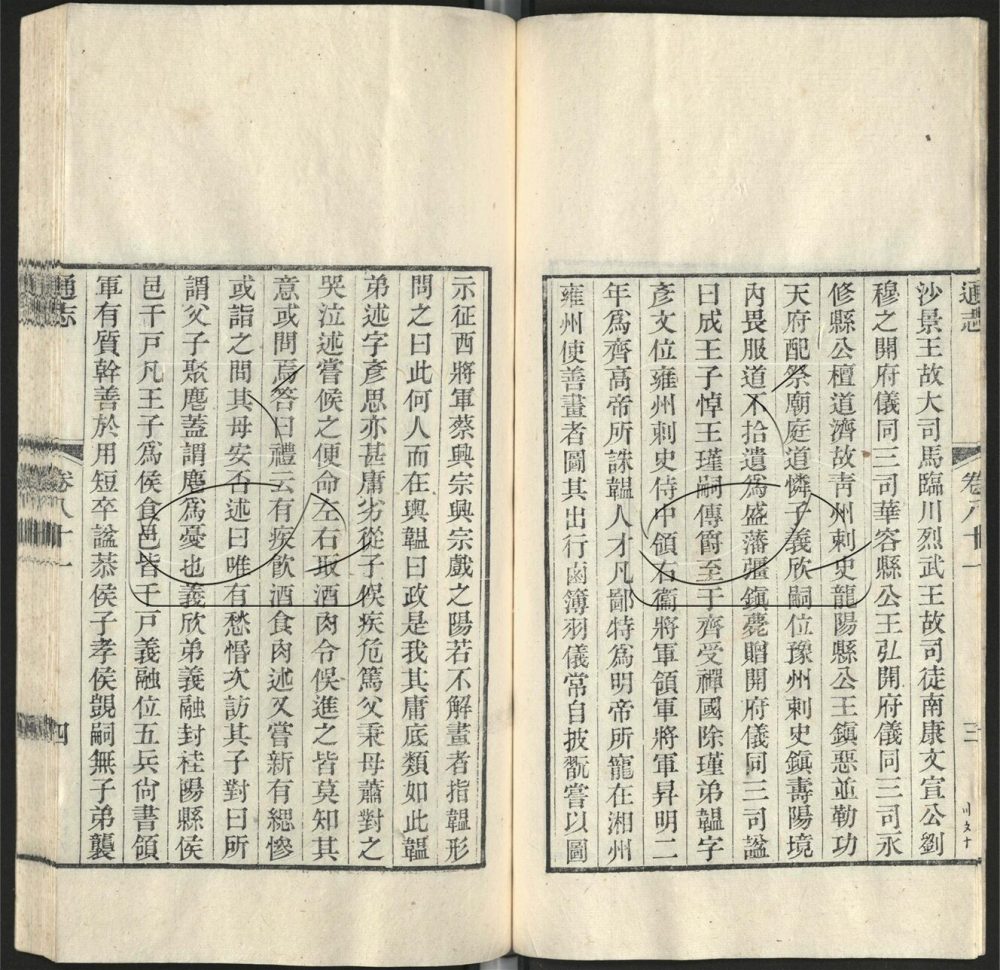 通志
卷八十一
三
沙景王故大司馬臨川烈武王故司徒南康文宣公劉
穆之開府儀同三司華容縣公王弘開府儀同三司永
修縣公檀道濟故青州刺史龍陽縣公王鎮惡並勒功
天府配祭廟庭道憐子義欣嗣位豫州刺史鎮壽陽境
內畏服道不拾遺爲盛藩彊鎮薨贈開府儀同三司謚
曰成王子悼王瑾嗣傳爵至于齊受禪國除瑾弟韞字
彥文位雍州刺史侍中領右衞將軍領軍將軍昇明二
年爲齊高帝所誅韞人才凡鄙特爲明帝所寵在湘州
雍州使善畫者圖其出行鹵簿羽儀常自披翫嘗以圖
示征西將軍蔡興宗興宗戲之陽若不解畫者指韞形
問之曰此何人而在輿韞曰政是我其庸底類如此韞
弟述字彥思亦甚庸劣從子俁疾危篤父秉母蕭對之
哭泣述嘗候之便命左右取酒肉令俁進之皆莫知其
意或問焉答曰禮云有疾飮酒食肉述又嘗新有緦慘
或詣之問其母安否述曰唯有愁惛次訪其子對曰所
謂父子聚麀蓋謂麀爲憂也義欣弟義融封桂陽縣侯
邑千戸凡王子爲侯食邑皆千戸義融位五兵尙書領
軍有質幹善於用短卒謚恭侯子孝侯覬嗣無子弟襲
通志
卷八十一
四